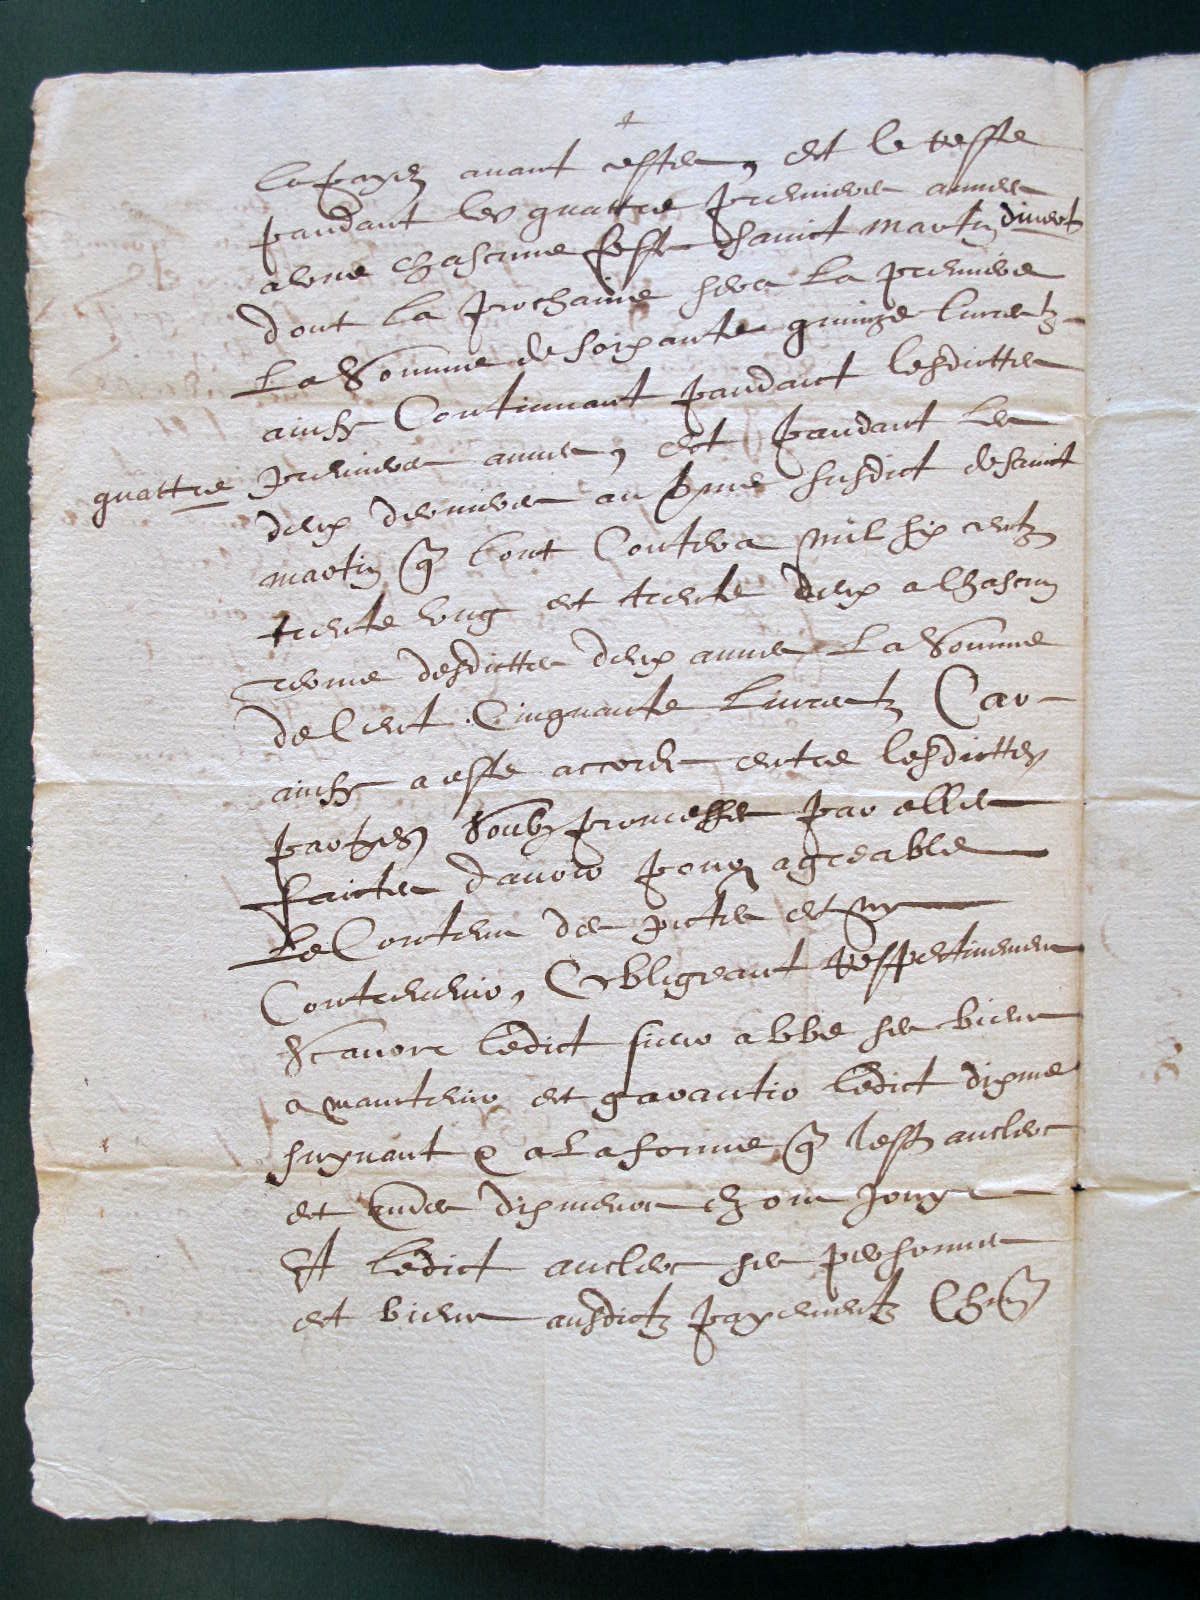 avant cestes, et le reste
pandant les quattre premieres annees
a une chascune feste Sainct martin diverts
dont la prochaine sera la premiere
La Somme de soixante quinze livretz
ainsy Continuant pandant lesdittes
quattre premieres annees, et pandant les
deux dernieres au terme susdict de sainct
martin que lont Contera mil six centz
trente ung et trente deux a Chascun
terme desdittes deux annees La Somme
de Cent Cinquante Livretz Car
ainsy a este accorde entre lesdittes
partyes Soubz promesses par elles
faictes davoir pour agreable
Le Contenu des pntes et ny
Contrevenir, Obligeant respectivement
Scavoir ledict sieur abbe ses biens
a mantenir et garantir ledict dixme
suyvant et a La forme que lesd anclerc
et dixmeurs en ont jouy
Et ledict anclerc ses personne
et biens ausdictz payementz